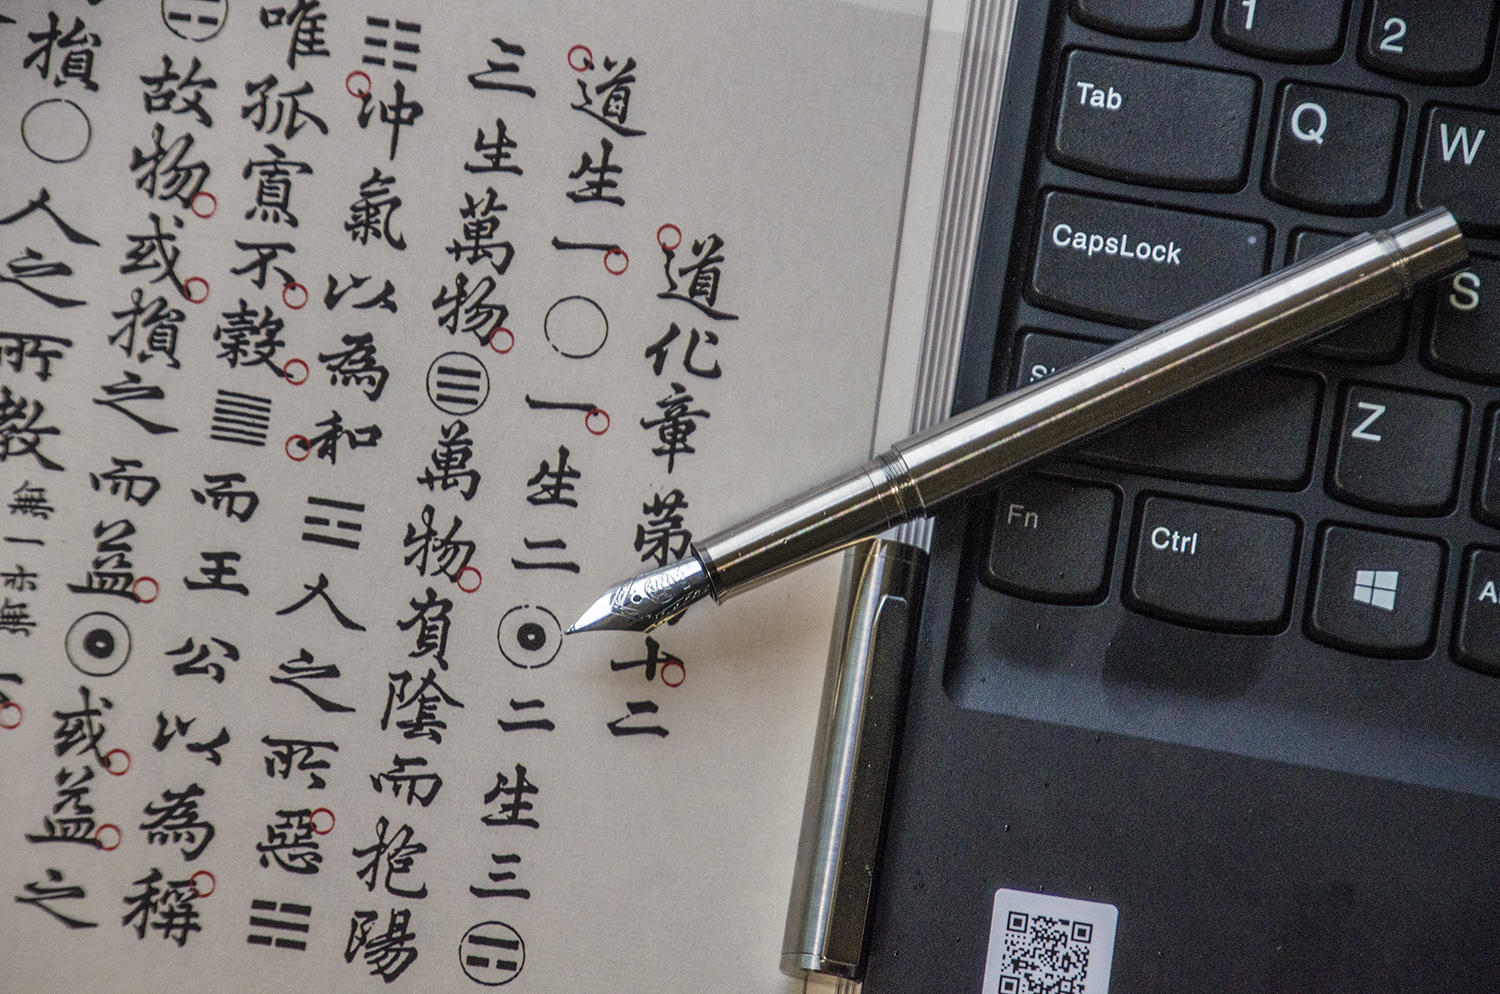 道化章第十二
道生一一生二二生三
三生萬物萬物負陰而抱陽
冲氣以為和人之所惡
唯孤寡不穀而王公以為稱
故物或損之而益或益之
損人之所教無一亦無
1 2
Tab Q W
CapsLock S
Z
Fn Ctrl